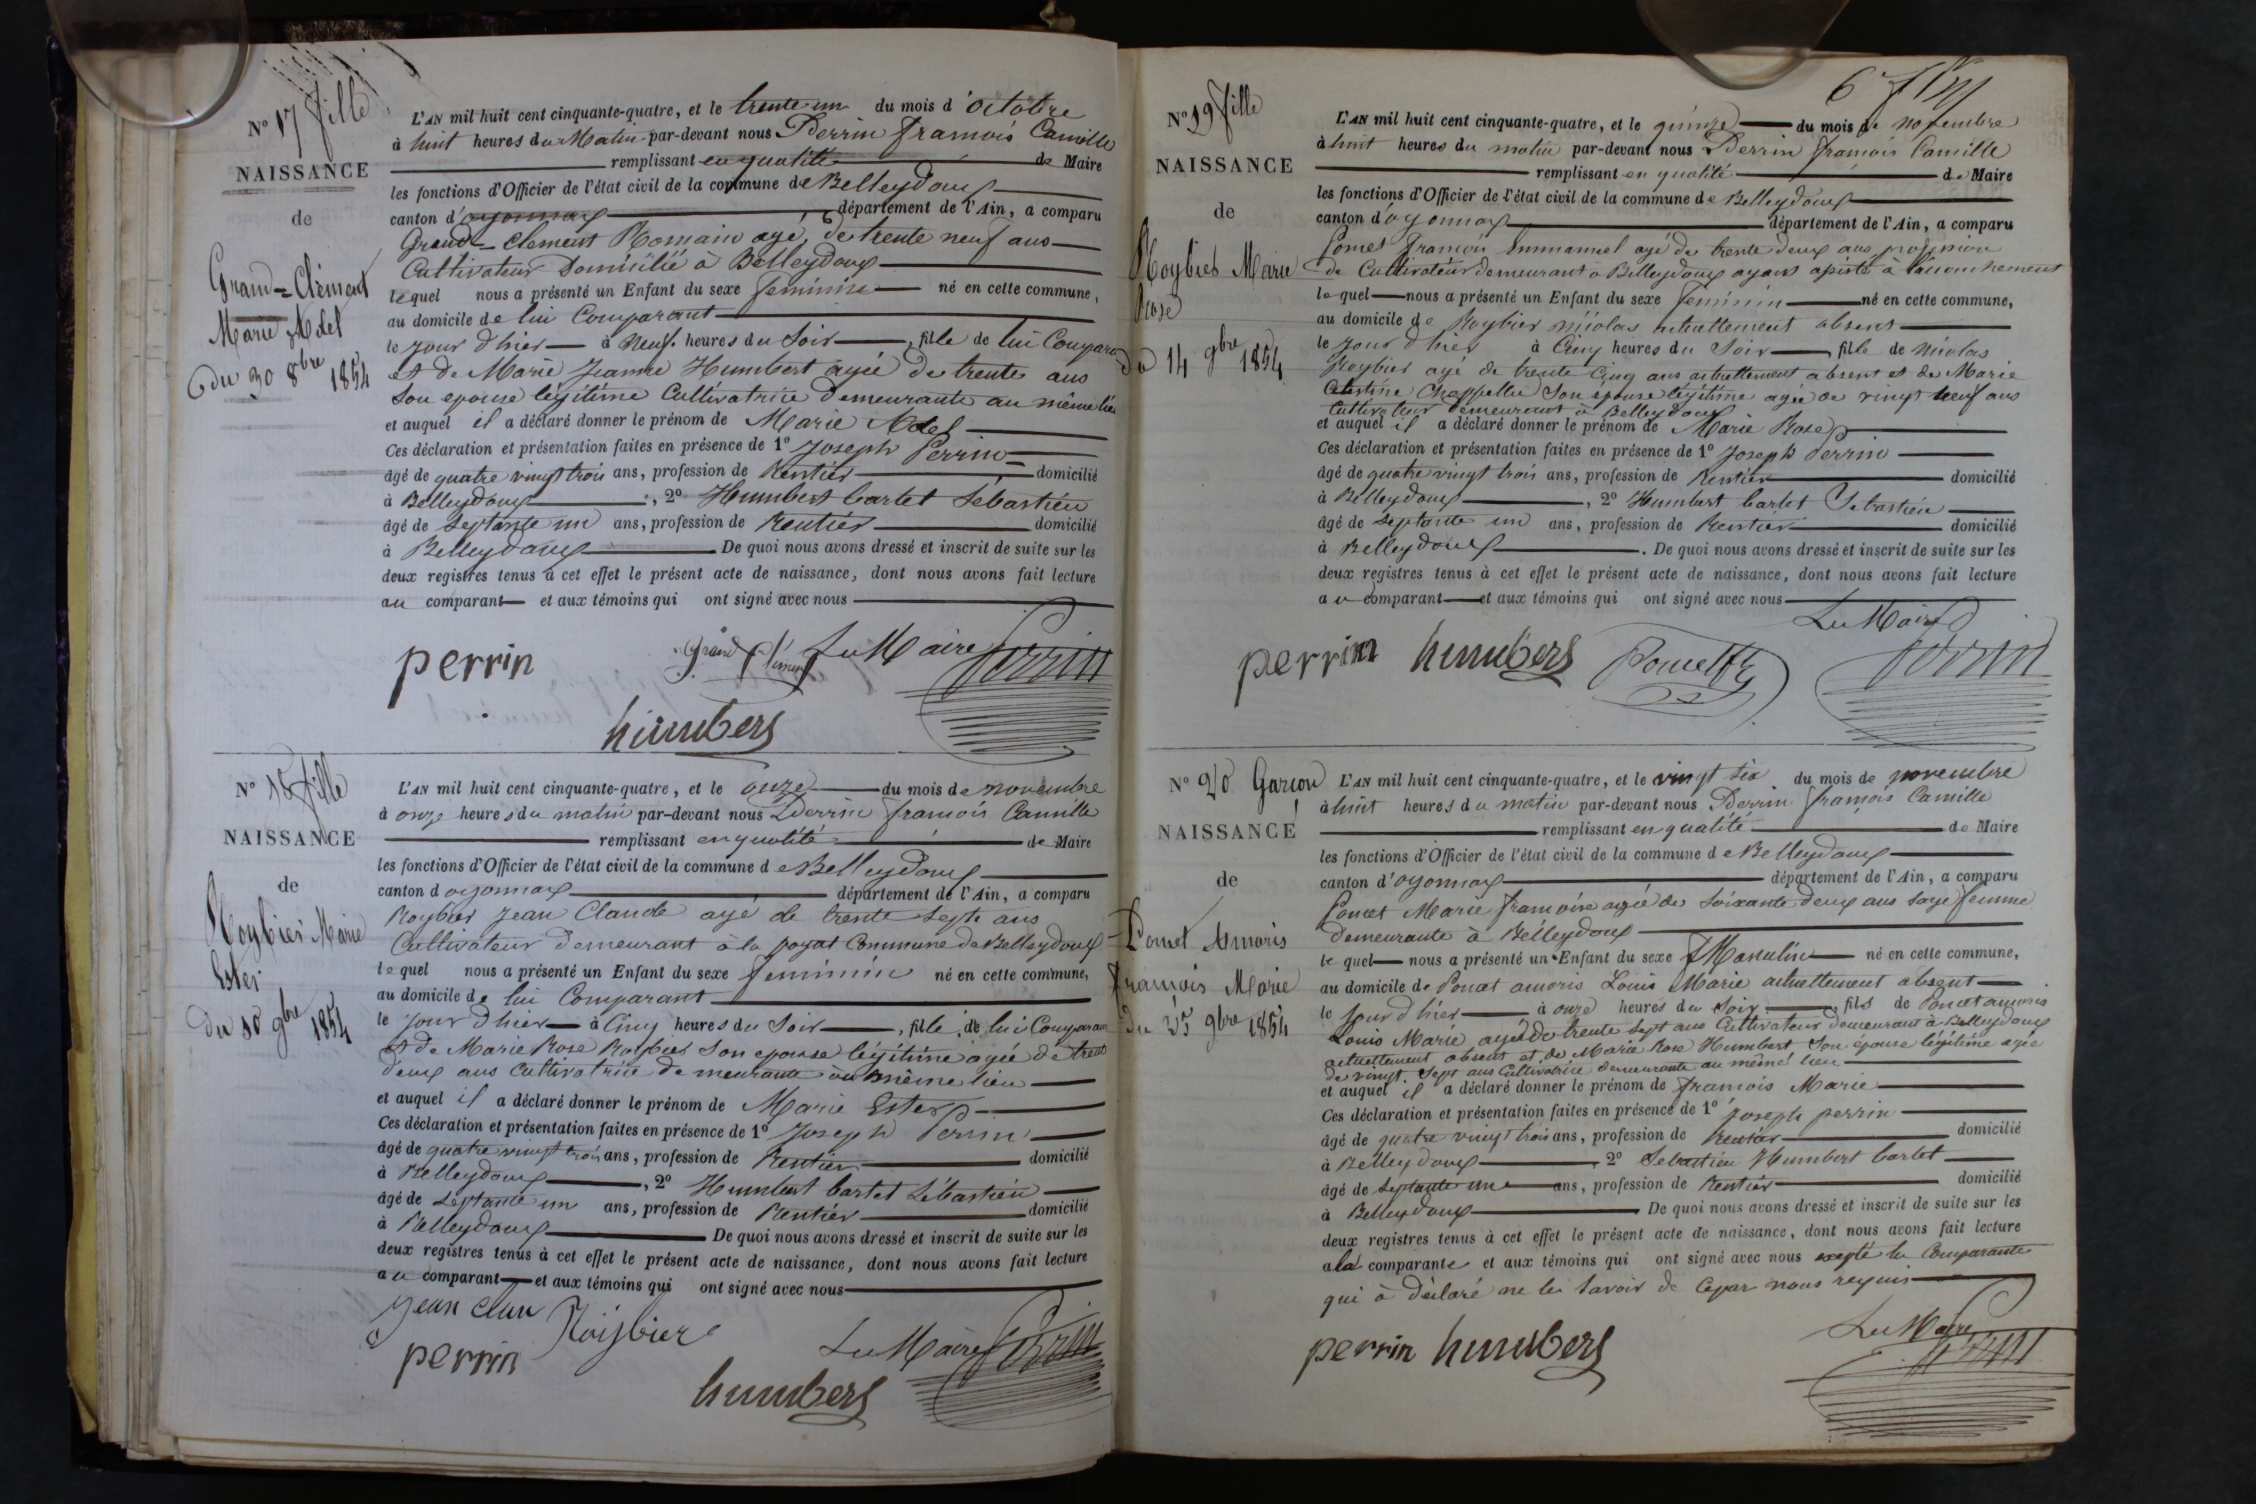 N° 17 fille
NAISSANCE
de
Grand=Clément
Marie Adel
du 30 8bre 1854
L'AN mil huit cent cinquante-quatre, et le trente un du mois d'octobre
à huit heures du Matin par-devant nous Perrin françois Camille
remplissant en qualité de Maire
les fonctions d'Officier de l'état civil de la commune de Belleydoux
canton d'oyonnax département de l'Ain, a comparu
Grand=Clement Romain agé, de trente neuf ans
Cultivateur Domicilié à Belleydoux
lequel nous a présenté un Enfant du sexe feminin né en cette commune,
au domicile de lui Comparant
le jour d'hier à Neuf heures du Soir, fille de lui Compara
et de Marie Jeanne Humbert agée de trente ans
Son epouse légitime Cultivatrice Demeurante au même lieu
et auquel il a déclaré donner le prénom de Marie Adel
Ces déclaration et présentation faites en présence de 1° Joseph Perrin
âgé de quatre vingt trois ans, profession de Rentier domicilié
à Belleydoux, 2° Humbert Cartet Sébastien
âgé de septante un ans, profession de Rentier domicilié
à Belleydoux De quoi nous avons dressé et inscrit de suite sur les
deux registres tenus à cet effet le présent acte de naissance, dont nous avons fait lecture
au comparant et aux témoins qui ont signé avec nous
perrin grand Clément Le Maire Perrin
humbert
N° 18 fille
NAISSANCE
de
Roybier Marie
Ester
du 10 9bre 1854
L'AN mil huit cent cinquante-quatre, et le onze du mois de novembre
à onze heures du matin par-devant nous Perrin françois Camille
remplissant en qualité de Maire
les fonctions d'Officier de l'état civil de la commune de Belleydoux
canton d'oyonnax département de l'Ain, a comparu
Roybier Jean Claude agé de trente sept ans
Cultivateur demeurant à la poyat Commune de Belleydoux
lequel nous a présenté un Enfant du sexe feminin né en cette commune,
au domicile de lui Comparant
le jour d'hier à Cinq heures du Soir, fille de lui Comparan
et de Marie Rose Roybier son epouse légitime agée de trente
deux ans Cultivatrice demeurante au même lieu
et auquel il a déclaré donner le prénom de Marie Ester
Ces déclaration et présentation faites en présence de 1° Joseph Perrin
âgé de quatre vingt trois ans, profession de Rentier domicilié
à Belleydoux, 2° Humbert Cartet Sébastien
âgé de septante un ans, profession de Rentier domicilié
à Belleydoux De quoi nous avons dressé et inscrit de suite sur les
deux registres tenus à cet effet le présent acte de naissance, dont nous avons fait lecture
au comparant et aux témoins qui ont signé avec nous
jean clau Roijbier
perrin Le Maire Perrin
humbert
6
N° 19 fille
NAISSANCE
de
Roybier Marie
Rose
du 14 9bre 1854
L'AN mil huit cent cinquante-quatre, et le quinze du mois de novembre
à huit heures du matin par-devant nous Perrin françois Camille
remplissant en qualité de Maire
les fonctions d'Officier de l'état civil de la commune de Belleydoux
canton d'oyonnax département de l'Ain, a comparu
Poncet françois Emmanuel agé de trente deux ans profession
de Cultivateur demeurant à Belleydoux ayant assisté à l'accouchement
lequel nous a présenté un Enfant du sexe feminin né en cette commune,
au domicile de Roybier nicolas actuellement absent
le jour d'hier à Cinq heures du Soir, fille de nicolas
Roybier agé de trente Cinq ans actuellement absent et de Marie
Celestine Chappelu Son epouse légitime agée de vingt neuf ans
Cultivateur demeurant à Belleydoux
et auquel il a déclaré donner le prénom de Marie Rose
Ces déclaration et présentation faites en présence de 1° Joseph Perrin
âgé de quatre vingt trois ans, profession de Rentier domicilié
à Belleydoux, 2° Humbert Cartet Sebastien
âgé de septante un ans, profession de Rentier domicilié
à Belleydoux. De quoi nous avons dressé et inscrit de suite sur les
deux registres tenus à cet effet le présent acte de naissance, dont nous avons fait lecture
au comparant et aux témoins qui ont signé avec nous
Le Maire
perrin humbert Poncet Perrin
N° 20 Garçon
NAISSANCE
de
Poncet Amoris
françois Marie
du 25 9bre 1854
L'AN mil huit cent cinquante-quatre, et le vingt six du mois de novembre
à huit heures du matin par-devant nous Perrin françois Camille
remplissant en qualité de Maire
les fonctions d'Officier de l'état civil de la commune de Belleydoux
canton d'oyonnax département de l'Ain, a comparu
Poncet Marie françoise agée de Soixante deux ans sage femme
demeurante à Belleydoux
lequel nous a présenté un Enfant du sexe Masculin né en cette commune,
au domicile de Poncet amoris Louis Marie actuellement absent
le jour d'hier à onze heures du Soir, fils de Poncet amoris
Louis Marie agé de trente sept ans Cultivateur demeurant à Belleydoux
actuellement absent et de Marie Rose Humbert Son épouse légitime agée
de vingt Sept ans Cultivatrice demeurante au même lieu
et auquel il a déclaré donner le prénom de françois Marie
Ces déclaration et présentation faites en présence de 1° Joseph perrin
âgé de quatre vingt trois ans, profession de Rentier domicilié
à Belleydoux, 2° Sebastien Humbert Cartet
âgé de septante un ans, profession de Rentier domicilié
à Belleydoux De quoi nous avons dressé et inscrit de suite sur les
deux registres tenus à cet effet le présent acte de naissance, dont nous avons fait lecture
à la comparante et aux témoins qui ont signé avec nous exepté la Comparante
qui à déclaré ne le savoir de Ce par nous requis
Le Maire
perrin humbert Perrin